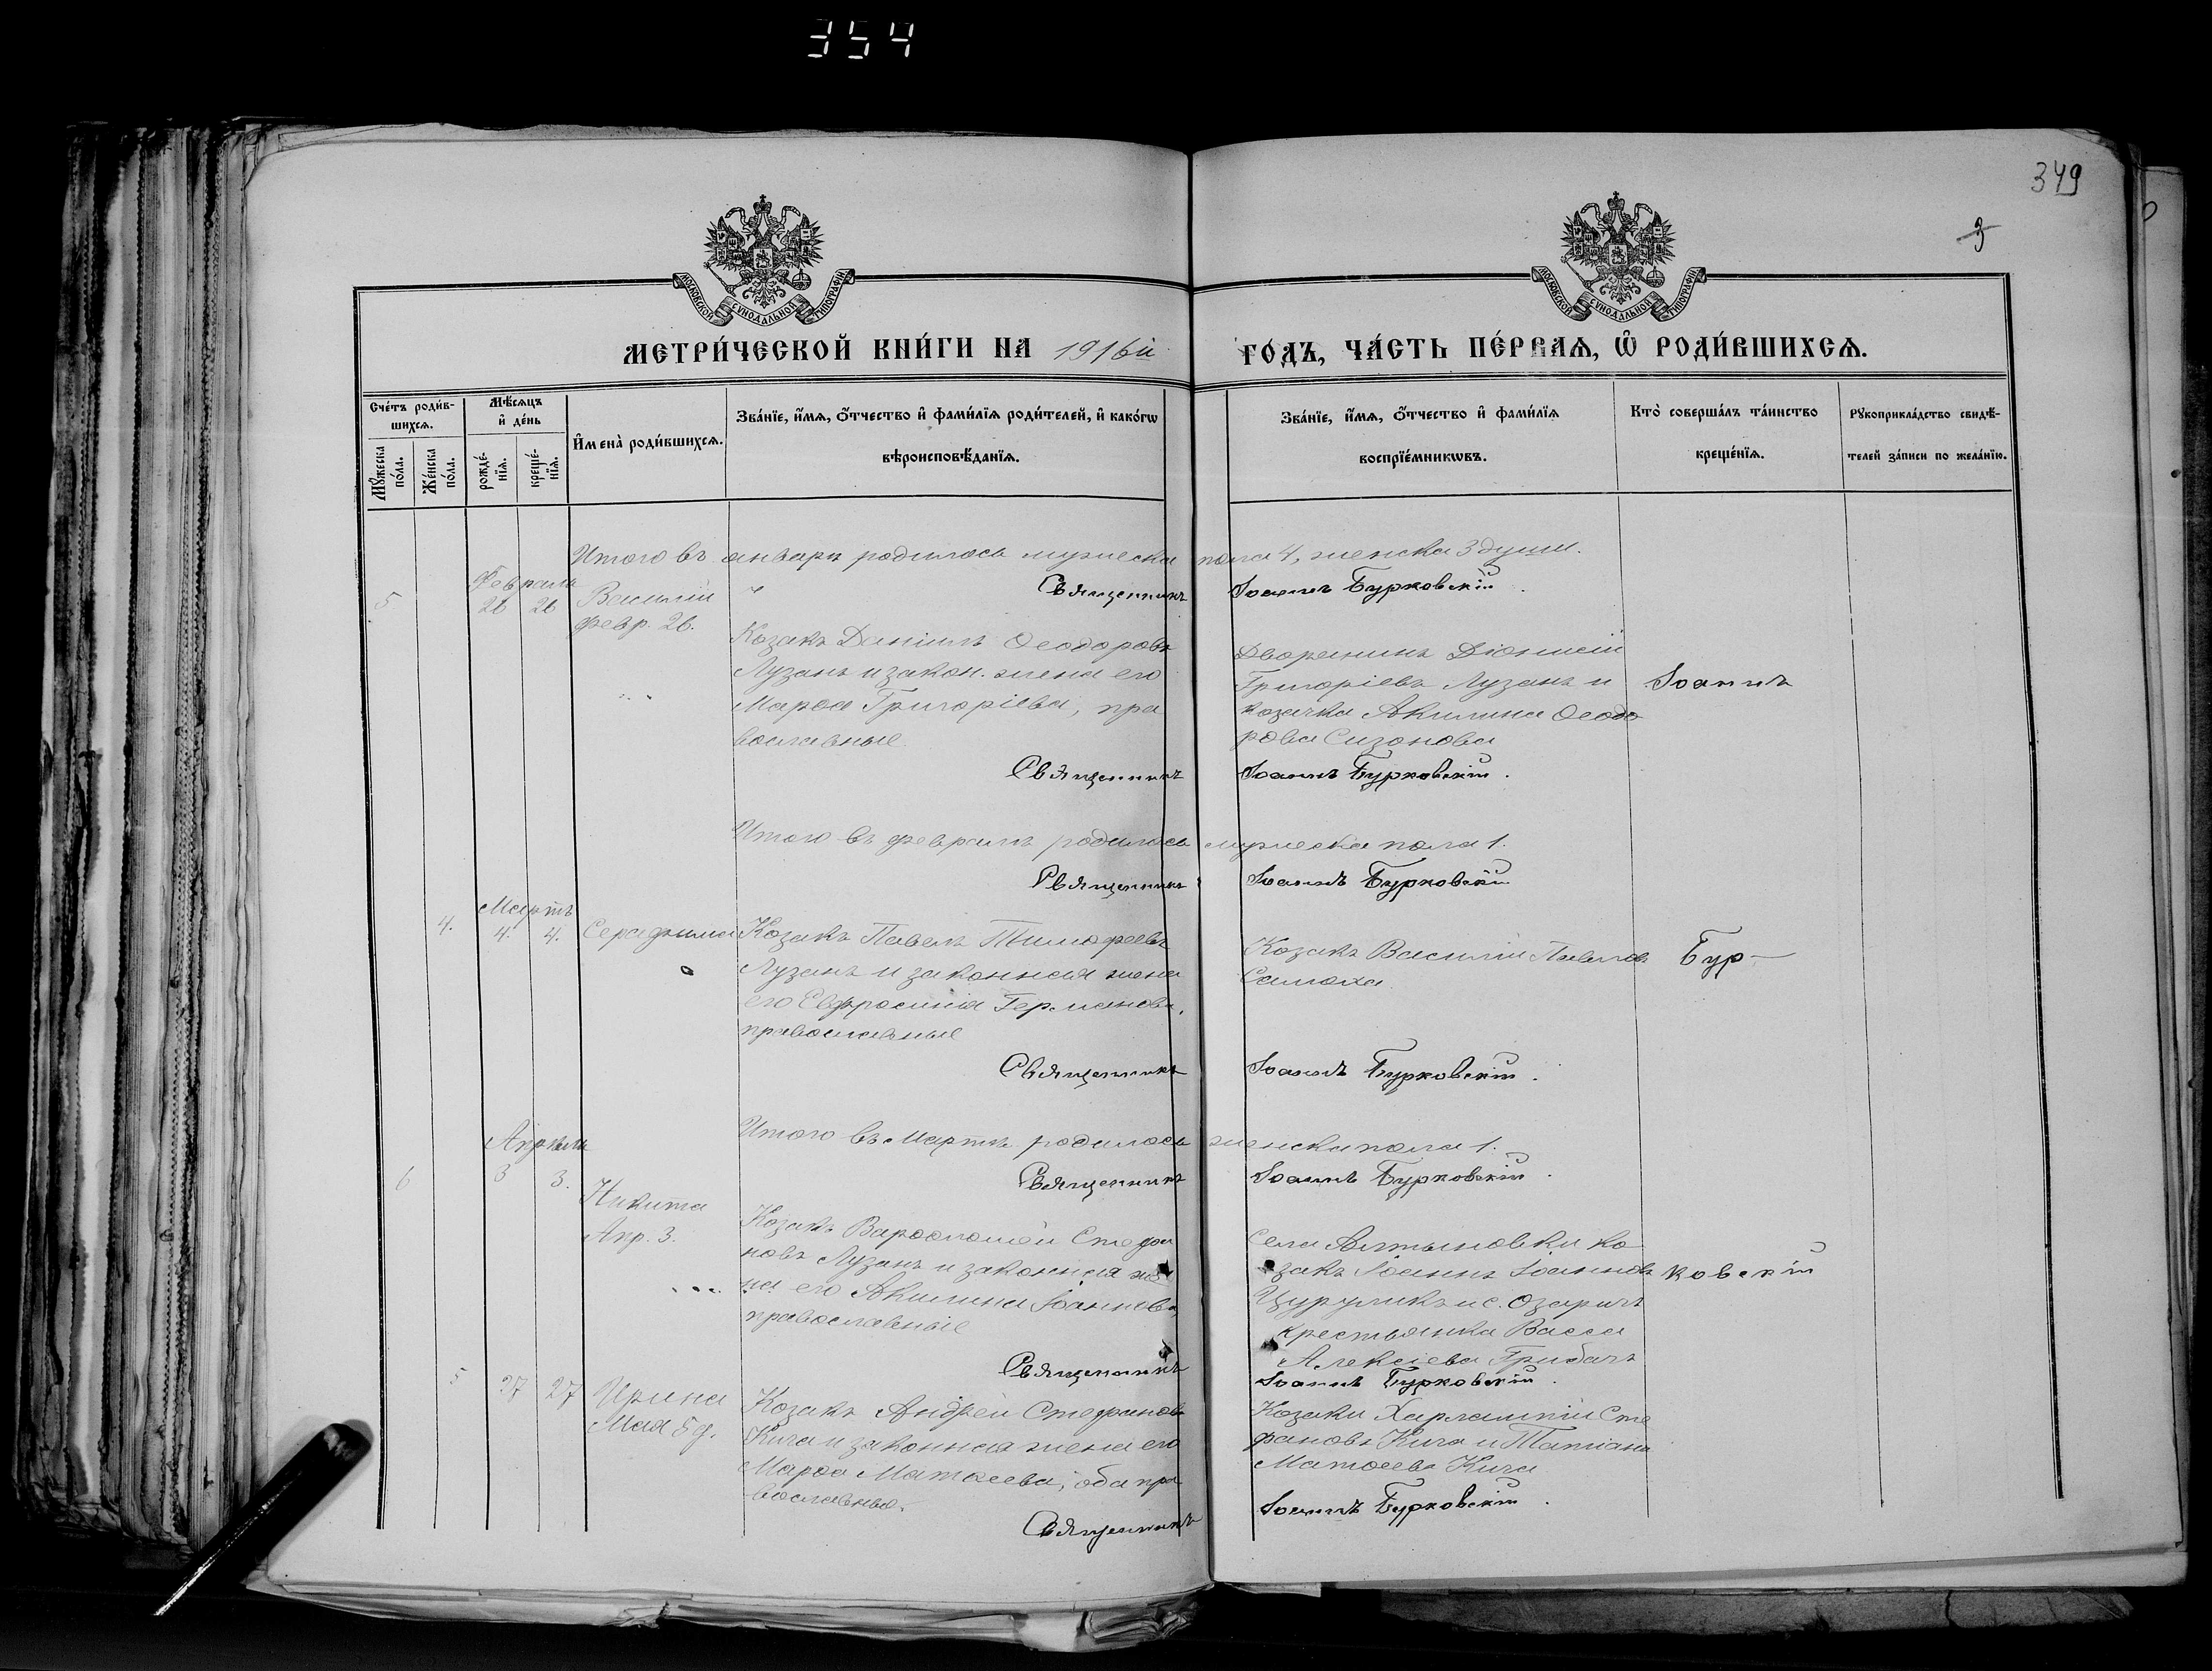 354
349
3
МОСКОВСКОЙ СѴНОДАЛЬНОЙ ТИПОГРАФІИ
МОСКОВСКОЙ СѴНОДАЛЬНОЙ ТИПОГРАФІИ
МЕТРИ́ЧЕСКОЙ КНИ́ГИ НА 1916й ГО́ДЪ, ЧА́СТЬ ПЕ́РВАѦ, Ѽ РОДИ́ВШИХСѦ.
Сче́тъ роди́в-
шихсѧ.
Мꙋ́жеска
по́ла.
Же́нска
по́ла.
Мѣ́сѧцъ
и҆ де́нь
рожде́-
нїѧ.
креще́-
нїѧ.
И҆мена̀ роди́вшихсѧ.
Зва́нїе, и҆́мѧ, ѻ҆́тчество и҆ фами́лїѧ роди́телей, и҆ како́гѡ
вѣроисповѣ́данїѧ.
Зва́нїе, и҆́мѧ, ѻ҆́тчество и҆ фами́лїѧ
воспрїе́мникѡвъ.
Кто̀ соверша́лъ та́инство
креще́нїѧ.
Рꙋкоприкла́дство свидѣ́-
телей за́писи по жела́нїю.
Итого въ январѣ родилось мужеска пола 4, женска 3 души.
Священникъ Іоаннъ Бурковскій
Февраль
5 26 26 Василій
февр. 26.
Козакъ Даніилъ Ѳеодоровъ
Лузанъ и закон. жена его
Марѳа Григоріева, пра
вославные
Дворянинъ Діонисій
Григоріевъ Лузанъ и
козачка Акилина Ѳеодо
рова Сизонова
Іоаннъ
Священникъ Іоаннъ Бурковскій.
Итого въ февралѣ родилось мужеска пола 1.
Священникъ Іоаннъ Бурковскій
Мартъ
4. 4. 4. Серафима
Козакъ Павелъ Тимофеевъ
Лузанъ и законная жена
его Евфросинія Германова,
православные
Козакъ Василій Павловъ
Самоха
Бур-
Священникъ Іоаннъ Бурковскій.
Итого въ Мартѣ родилось женска пола 1.
Священникъ Іоаннъ Бурковскій.
Апрѣль
6 3 3. Никита
Апр. 3.
Козакъ Варѳоломей Стефа
новъ Лузанъ и законная же
на его Акилина Іоаннова,
православные
Села Алтыновки ко
закъ Іоаннъ Іоанновъ
Цурулик и с. Озаричъ
крестьянка Васса
Алексіева Грибачъ
ковскій
Священникъ Іоаннъ Бурковскій.
5 27 27 Ирина
Мая 5 д.
Козакъ Андрей Стефановъ
Кича и законная жена его
Марѳа Матѳеева, оба пра
вославные.
Козаки Харлампій Сте
фановъ Кича и Татіана
Матѳеева Кича
Священникъ Іоаннъ Бурковскій.